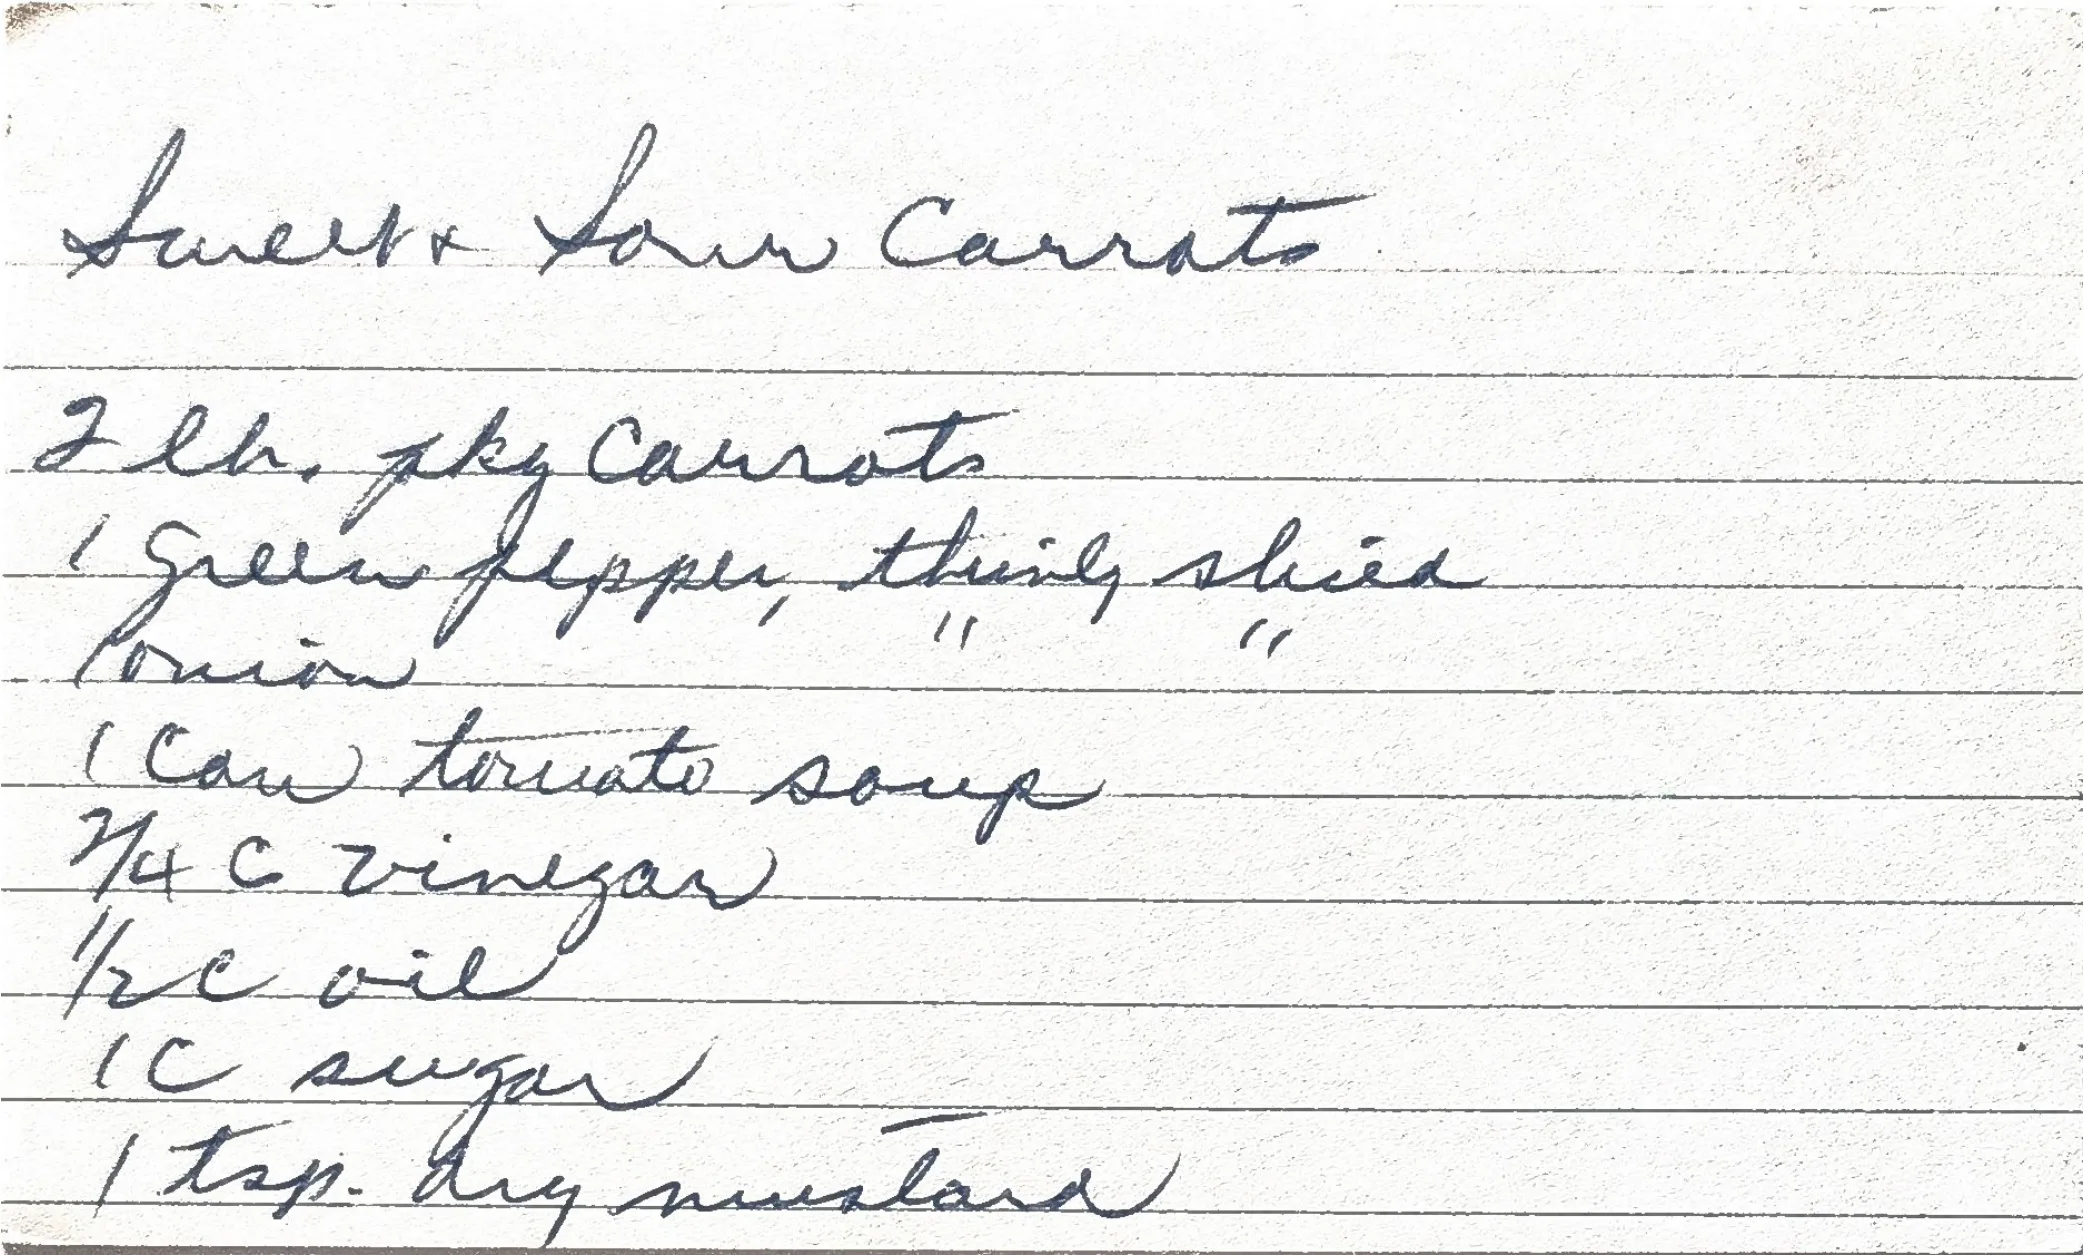 Sweet & Sour Carrots
2 lb. pkg Carrots
1 Green pepper, thinly sliced
1 onion " "
1 Can tomato soup
3/4 C vinegar
1/2 C oil
1 C sugar
1 tsp. dry mustard